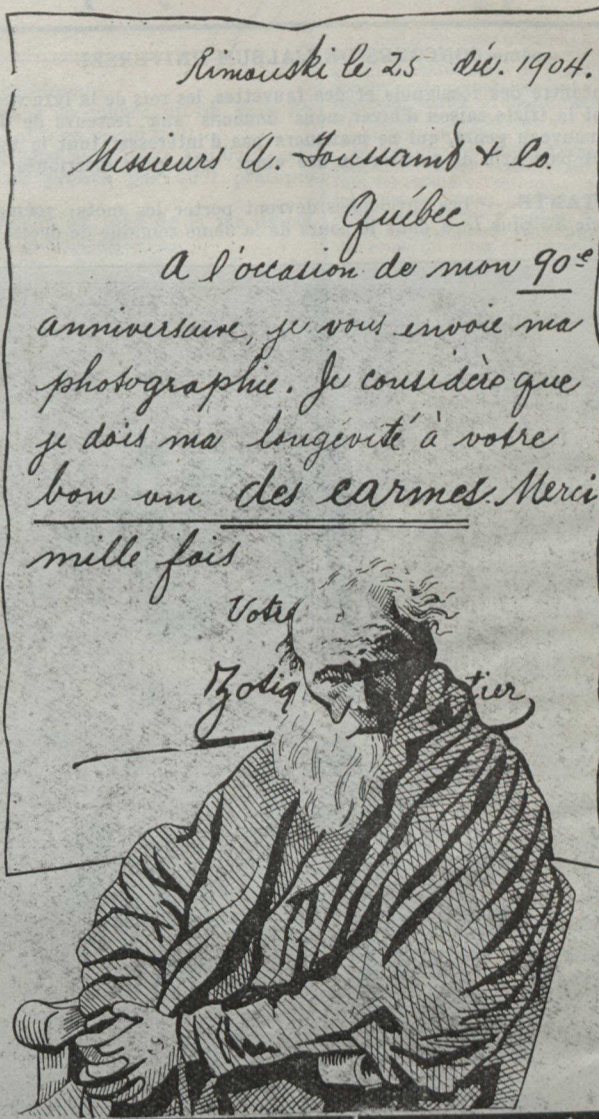 Rimouski le 25 déc. 1904.
Messieurs A. Toussaint & Co.
Québec
A l'occasion de mon 90e
anniversaire, je vous envoie ma
photographie. Je considère que
je dois ma longévité à votre
bon vin des carmes. Merci
mille fois
Votre
Zotiq tier